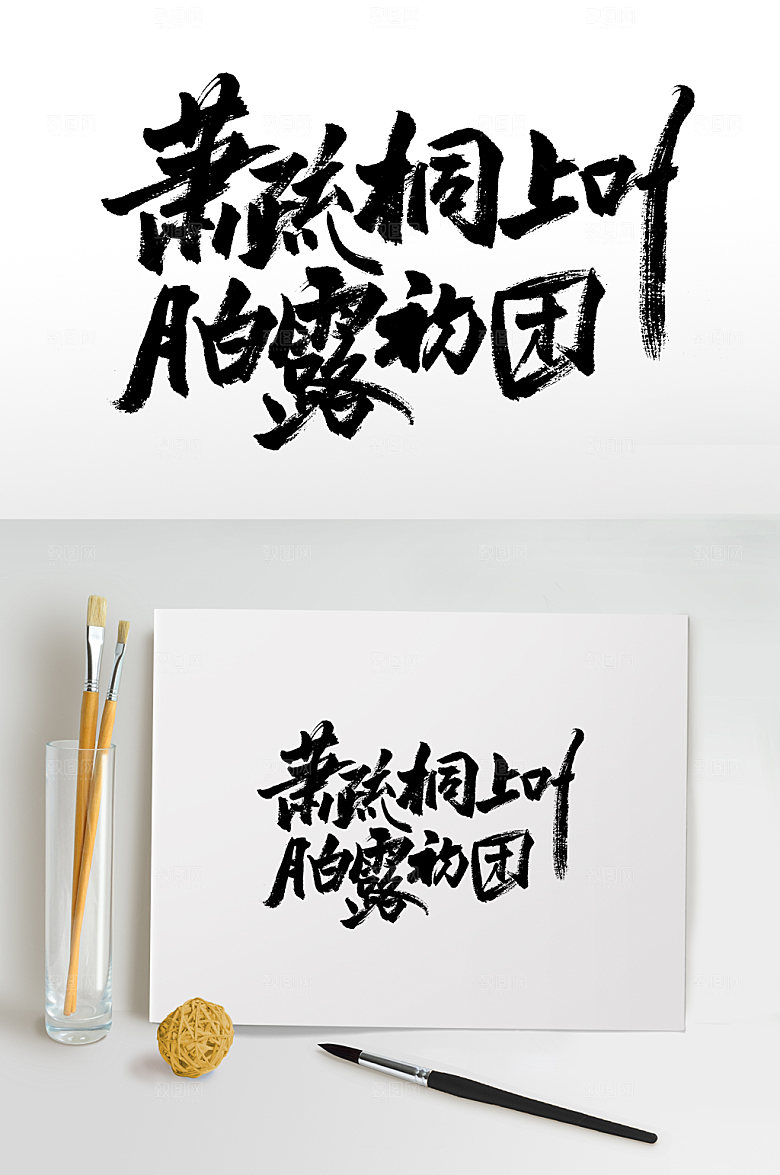 萧疏桐上叶
月白露初团
萧疏桐上叶
月白露初团